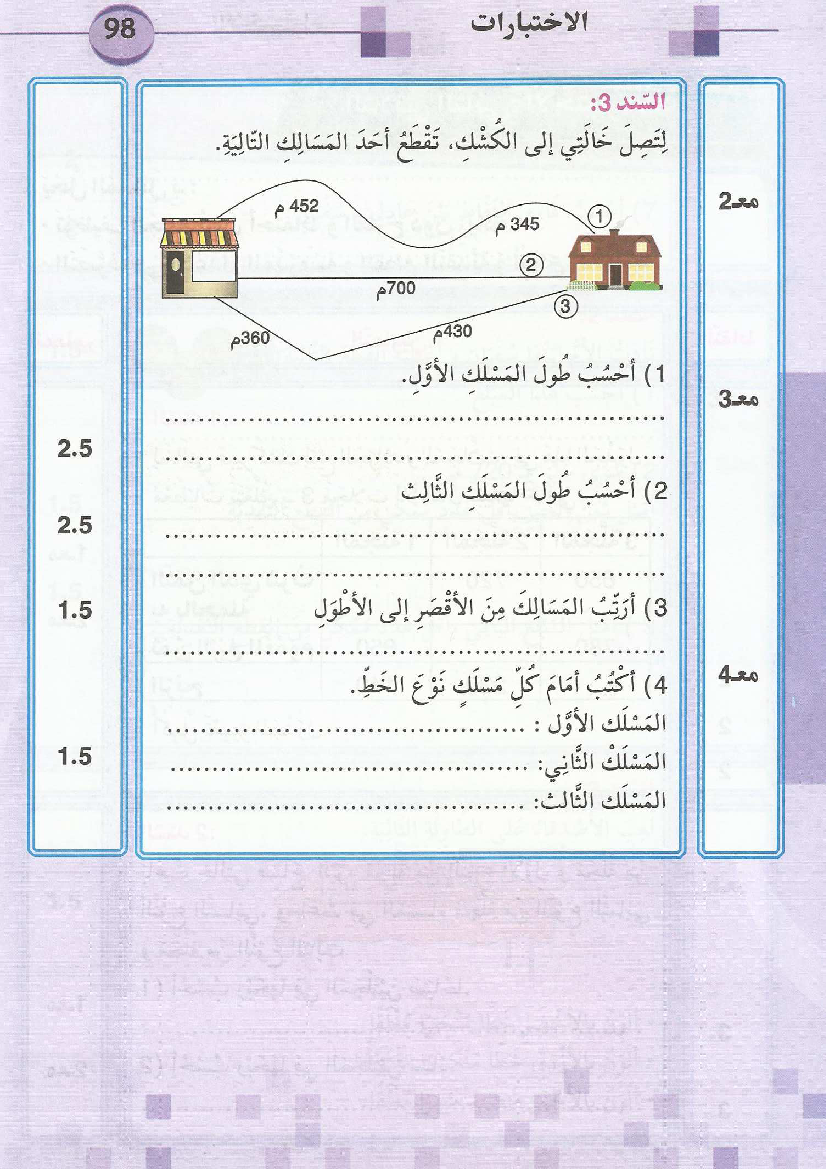 الاختبارات
98
السّند 3:
لِتَصِلَ خَالَتِي إلى الكُشْكِ، تَقْطَعُ أحَدَ المَسَالِكِ التّالِيَةِ.
مع2
452 م
345 م
1
2
700م
3
430م
360م
1) أحْسُبُ طُولَ المَسْلَكِ الأوَّلِ.
مع3
................................................
................................................
2.5
2) أحْسُبُ طُولَ المَسْلَكِ الثَّالِث
2.5
................................................
................................................
3) أرَتِّبُ المَسَالِكَ مِنَ الأقْصَرِ إلى الأطْوَلِ
1.5
................................................
4) أكْتُبُ أمَامَ كُلِّ مَسْلَكٍ نَوْعَ الخَطِّ.
مع4
المَسْلَك الأوَّل : ........................................
المَسْلَكْ الثَّانِي: ........................................
1.5
المَسْلَك الثَّالث: ........................................